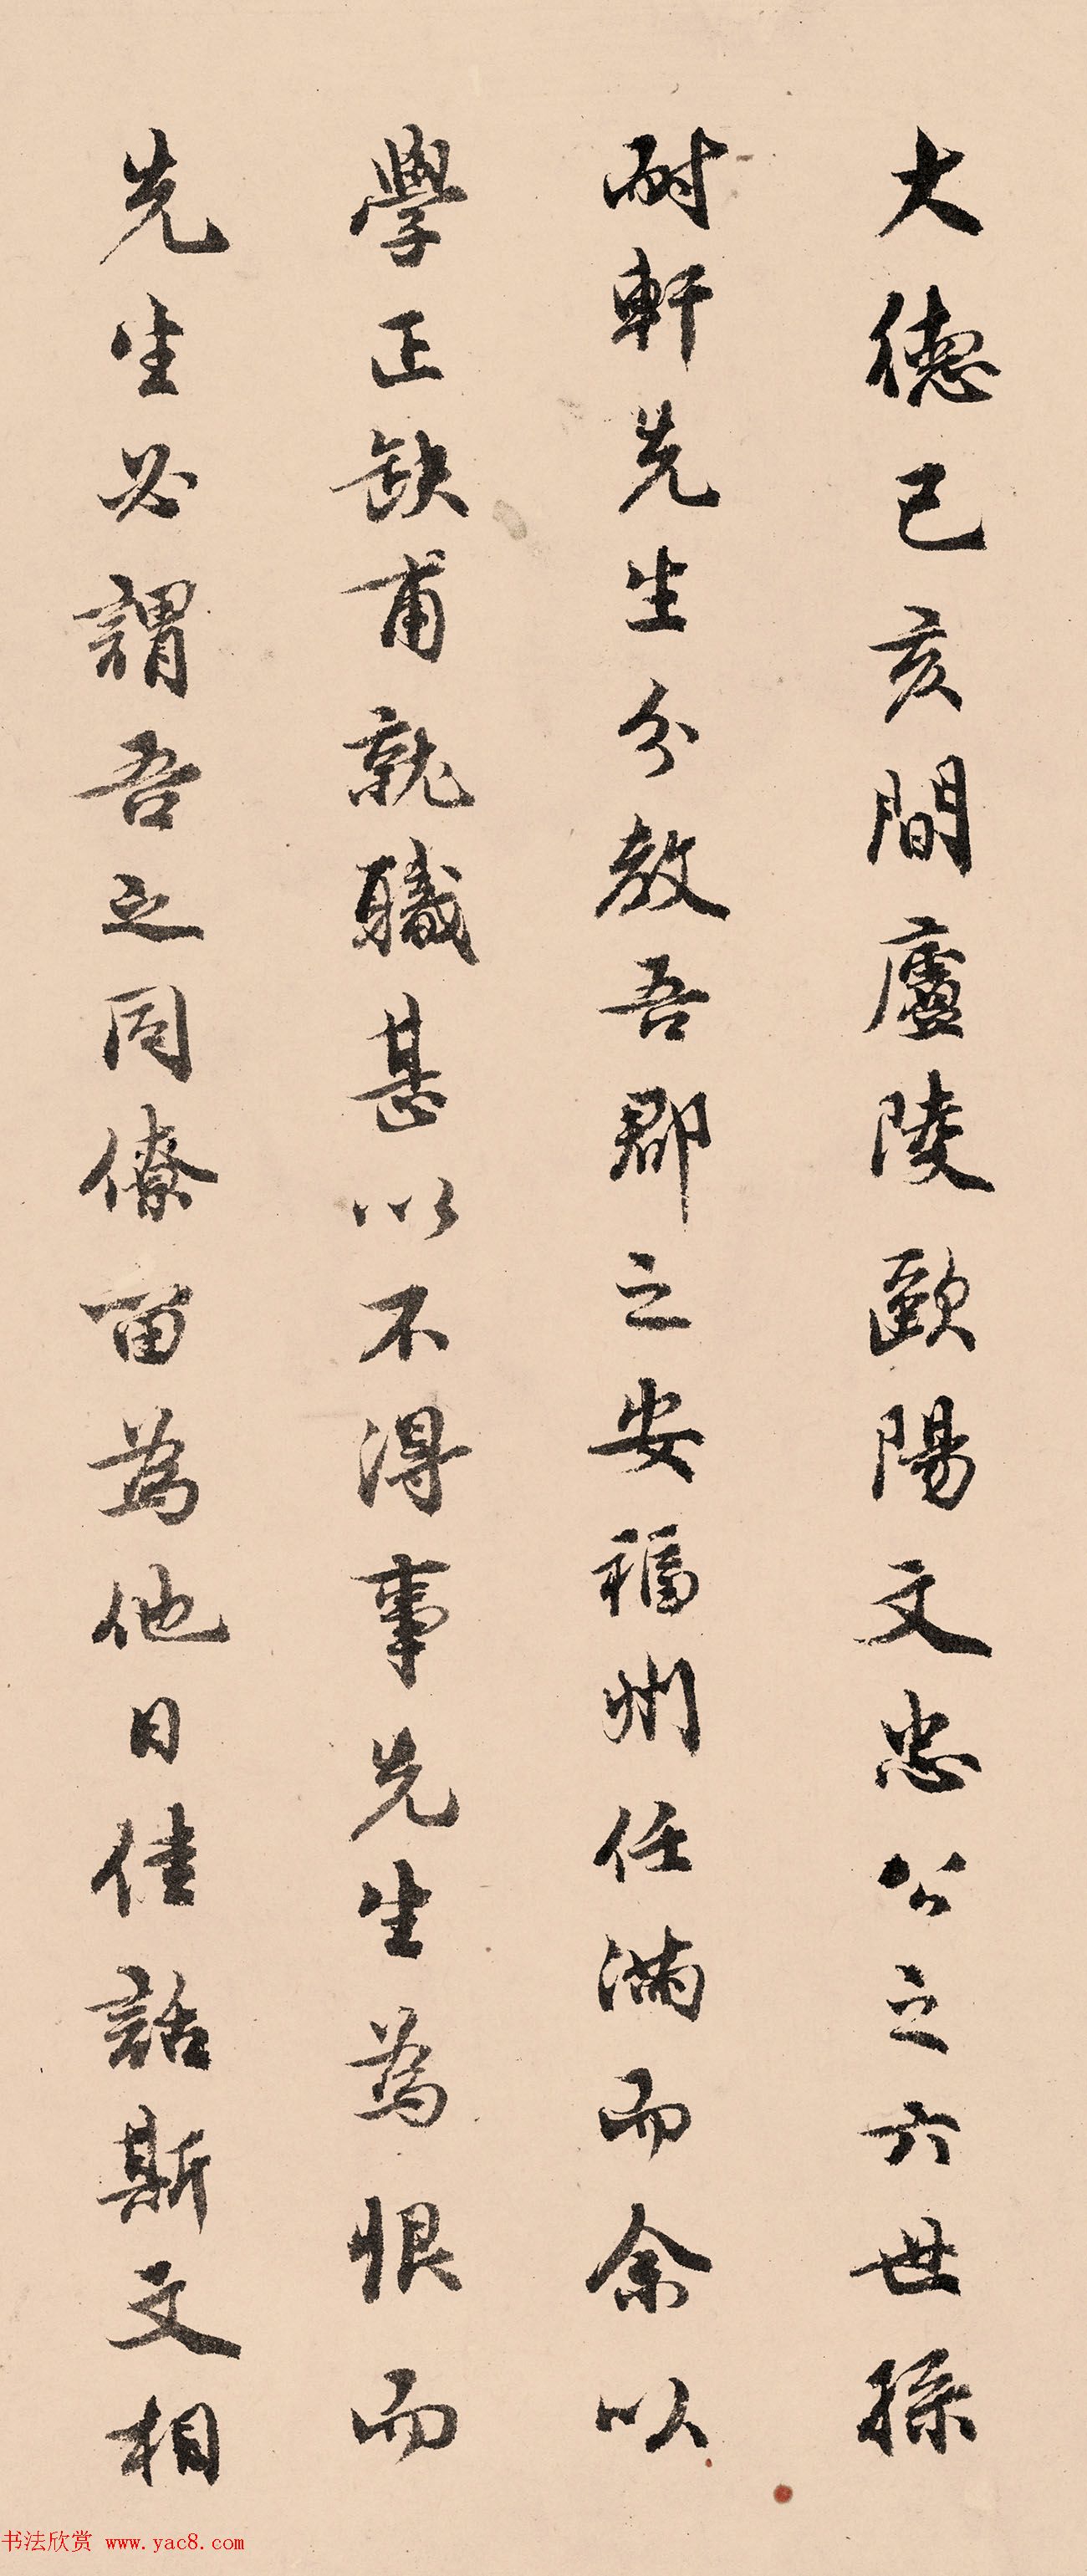 大德已亥間廬陵歐陽文忠公之六世孫
耐軒先生分教吾郡之安福州任滿而余以
學正缺甫就職甚以不得事先生為恨而
先生必謂吾之同僚畱為他日佳話斯文相
书法欣赏 www.yac8.com